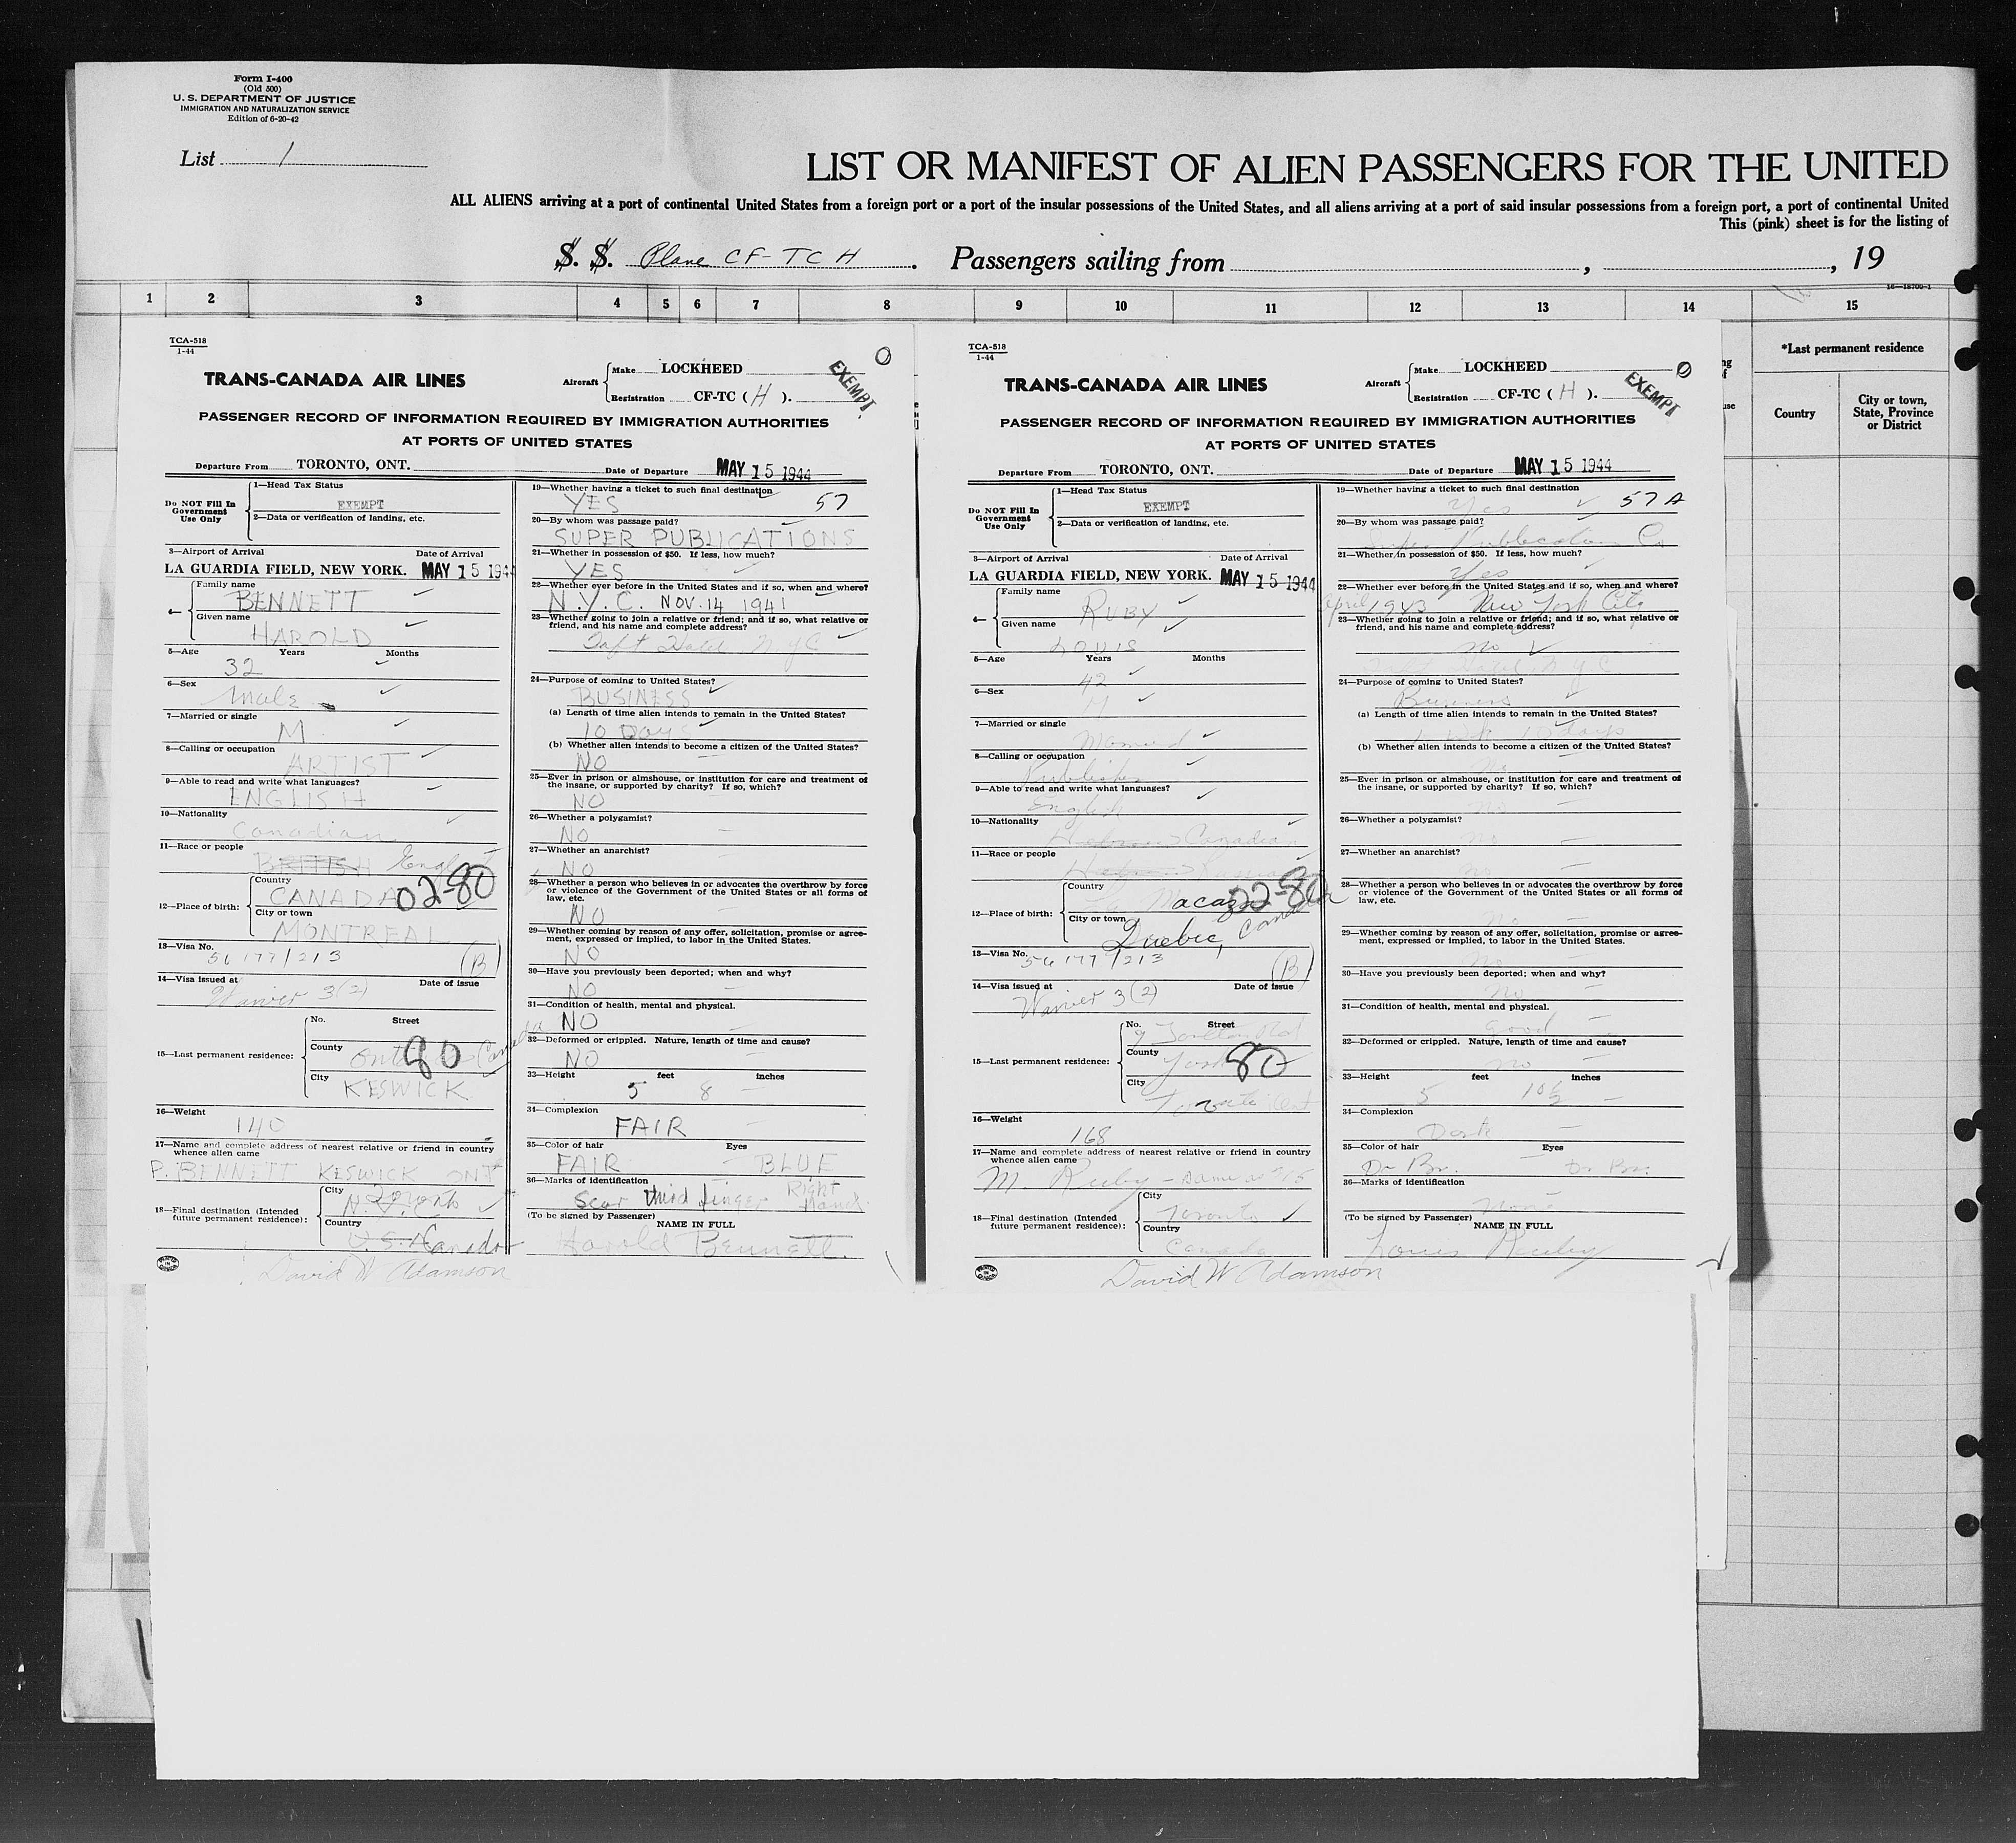 Form I-400
(Old 500)
U. S. DEPARTMENT OF JUSTICE
IMMIGRATION AND NATURALIZATION SERVICE
Edition of 6-20-42
List 1
LIST OR MANIFEST OF ALIEN PASSENGERS FOR THE UNITED
ALL ALIENS arriving at a port of continental United States from a foreign port or a port of the insular possessions of the United States, and all aliens arriving at a port of said insular possessions from a foreign port, a port of continental United
This (pink) sheet is for the listing of
S. S. Plane CF-TCH. Passengers sailing from , , 19
16—18700-1
1 2 3 4 5 6 7 8 9 10 11 12 13 14 15
*Last permanent residence
Country
City or town, State, Province or District
TCA-518
1-44
TRANS-CANADA AIR LINES
Aircraft
Make LOCKHEED
Registration CF-TC (H).
EXEMPT
PASSENGER RECORD OF INFORMATION REQUIRED BY IMMIGRATION AUTHORITIES
AT PORTS OF UNITED STATES
Departure From TORONTO, ONT. Date of Departure MAY 15 1944
Do NOT Fill In Government Use Only
1—Head Tax Status
EXEMPT
2—Data or verification of landing, etc.
3—Airport of Arrival Date of Arrival
LA GUARDIA FIELD, NEW YORK. MAY 15 1944
4—
Family name
BENNETT
Given name
HAROLD
5—Age Years Months
32
6—Sex
Male
7—Married or single
M
8—Calling or occupation
ARTIST
9—Able to read and write what languages?
ENGLISH
10—Nationality
Canadian
11—Race or people
BRITISH English
12—Place of birth:
Country
CANADA 02-80
City or town
MONTREAL
13—Visa No.
56177/213 (B)
14—Visa issued at Date of issue
Waiver 3(2)
15—Last permanent residence:
No. Street
County
Ont 80 Canada
City
KESWICK
16—Weight
140
17—Name and complete address of nearest relative or friend in country whence alien came
P. BENNETT KESWICK ONT
18—Final destination (Intended future permanent residence):
City
Country
U.S. Canada
19—Whether having a ticket to such final destination
YES 57
20—By whom was passage paid?
SUPER PUBLICATIONS
21—Whether in possession of $50. If less, how much?
YES
22—Whether ever before in the United States and if so, when and where?
N.Y.C. NOV. 14 1941
23—Whether going to join a relative or friend; and if so, what relative or friend, and his name and complete address?
Taft Hotel N.Y.C
24—Purpose of coming to United States?
BUSINESS
(a) Length of time alien intends to remain in the United States?
10 DAYS
(b) Whether alien intends to become a citizen of the United States?
NO
25—Ever in prison or almshouse, or institution for care and treatment of the insane, or supported by charity? If so, which?
NO
26—Whether a polygamist?
NO
27—Whether an anarchist?
NO
28—Whether a person who believes in or advocates the overthrow by force or violence of the Government of the United States or all forms of law, etc.
NO
29—Whether coming by reason of any offer, solicitation, promise or agreement, expressed or implied, to labor in the United States.
NO
30—Have you previously been deported; when and why?
NO
31—Condition of health, mental and physical.
NO
32—Deformed or crippled. Nature, length of time and cause?
NO
33—Height feet inches
5 8
34—Complexion
FAIR
35—Color of hair Eyes
FAIR BLUE
36—Marks of identification
Scar third finger Right Hand
(To be signed by Passenger) NAME IN FULL
Harold Bennett.
David W Adamson
TCA-518
1-44
TRANS-CANADA AIR LINES
Aircraft
Make LOCKHEED
Registration CF-TC (H).
EXEMPT
PASSENGER RECORD OF INFORMATION REQUIRED BY IMMIGRATION AUTHORITIES
AT PORTS OF UNITED STATES
Departure From TORONTO, ONT. Date of Departure MAY 15 1944
Do NOT Fill In Government Use Only
1—Head Tax Status
EXEMPT
2—Data or verification of landing, etc.
3—Airport of Arrival Date of Arrival
LA GUARDIA FIELD, NEW YORK. MAY 15 1944
4—
Family name
RUBY
Given name
LOUIS
5—Age Years Months
42
6—Sex
M
7—Married or single
Married
8—Calling or occupation
Publisher
9—Able to read and write what languages?
English
10—Nationality
Hebrew Canadian
11—Race or people
Hebrew Russian
12—Place of birth:
Country
Macaza 22-80
City or town
Quebec, Canada
13—Visa No.
56177/213 (B)
14—Visa issued at Date of issue
Waiver 3(2)
15—Last permanent residence:
No. Street
9
County
York 80
City
Toronto Ont
16—Weight
168
17—Name and complete address of nearest relative or friend in country whence alien came
M. Ruby - same as #15
18—Final destination (Intended future permanent residence):
City
Toronto
Country
Canada
19—Whether having a ticket to such final destination
Yes 57 A
20—By whom was passage paid?
Super Publications Co
21—Whether in possession of $50. If less, how much?
Yes
22—Whether ever before in the United States and if so, when and where?
April 1943 New York City
23—Whether going to join a relative or friend; and if so, what relative or friend, and his name and complete address?
No
Taft Hotel N Y C
24—Purpose of coming to United States?
Business
(a) Length of time alien intends to remain in the United States?
10 days
(b) Whether alien intends to become a citizen of the United States?
No
25—Ever in prison or almshouse, or institution for care and treatment of the insane, or supported by charity? If so, which?
No
26—Whether a polygamist?
No
27—Whether an anarchist?
No
28—Whether a person who believes in or advocates the overthrow by force or violence of the Government of the United States or all forms of law, etc.
No
29—Whether coming by reason of any offer, solicitation, promise or agreement, expressed or implied, to labor in the United States.
No
30—Have you previously been deported; when and why?
No
31—Condition of health, mental and physical.
Good
32—Deformed or crippled. Nature, length of time and cause?
No
33—Height feet inches
5 10½
34—Complexion
Dark
35—Color of hair Eyes
Dr Br. Dr Br.
36—Marks of identification
None
(To be signed by Passenger) NAME IN FULL
Louis Ruby
David W Adamson